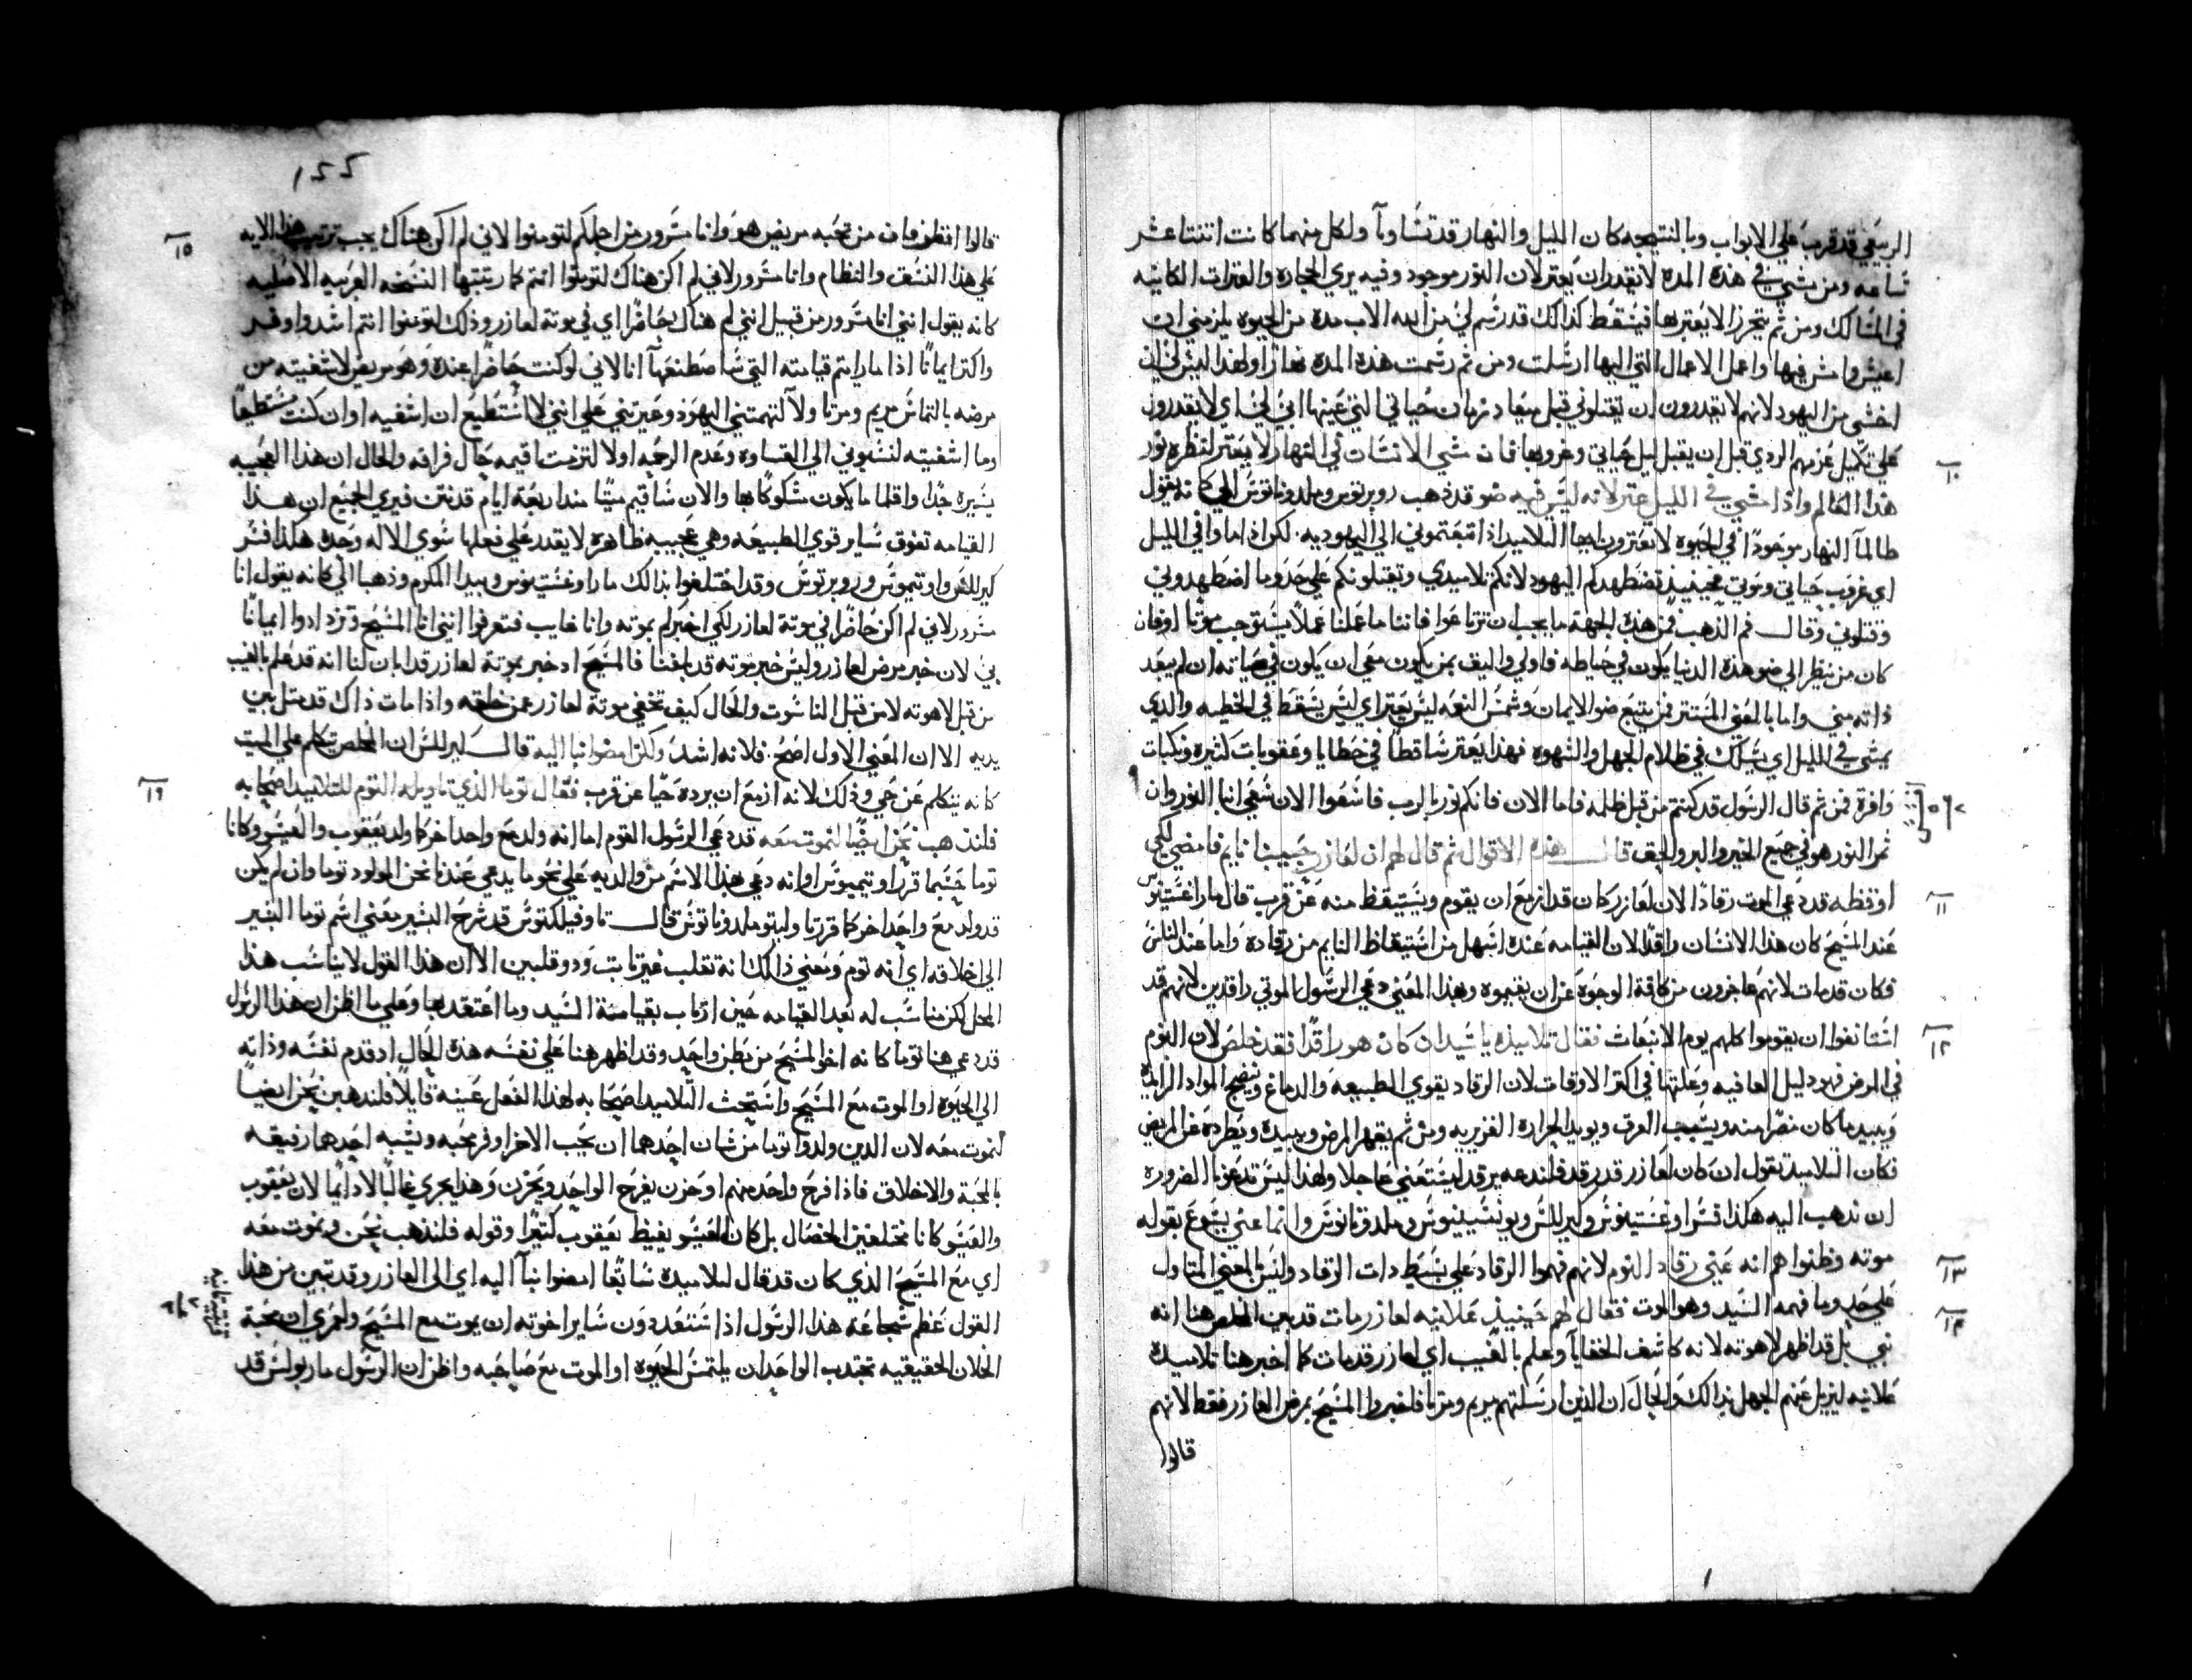 الربيعي قد قرب علي الابواب وبالنتيجه كان الليل والنهار قد تساويا ولكل منهما كانت اثنتا عشر
ساعه ومن مشي في هذه المده لا يقدر ان يعتر لان النور موجود وفيه يري الحجاره والعترات الكاينه
في المسالك ومن ثم يتحرز الا يعتر بها فيسقط كذالك قد رسم لي من الله الاب مدة من الحيوه يلزمني ان
اعيش وامشي فيها واعمل الاعمال التي اليها ارسلت ومن ثم رسمت هذه المده نهارًا ولهذا ليس لي ان
اخشي من اليهود لانهم لا يقدرون ان يقتلوني قبل ميعاد زمان حياتي التي عينها ابي لي اي لا يقدرون
علي تكميل عزمهم الردي قبل ان يقبل ليل حياتي وغروبها فان مشي الانسان في النهار لا يعتر لنظره نور
١٠
هذا العالم واذا مشي في الليل عتر لانه ليس فيه ضو قد ذهب روبرتوس وملدوناتوس الي كانه يقول
طالما النهار موجودًا في الحيوه لا تعترون ايها التلاميد اذا تبعتموني الي اليهوديه. لكن اذا ما وافي الليل
اي غروب حياتي وموتي فحينيذ تضطهدكم اليهود لانكم تلاميدي وتقتلونكم علي حذو ما اضطهدوني
وقتلوني وقال فم الذهب من هذه الجهة ما يجب ان ترتاعوا فاننا ما عملنا عملاً يستوجب موتًا او فان
كان من ينظر الي ضو هذه الدنيا يكون في حياطه فاولي واليق بمن يكون معي ان يكون في صيانه ان لم يبعد
ذاته مني واما بالمعني المستتر فمن يتبع ضو الايمان وشمس النعمه ليس يعتر اي ليس يسقط في الخطيه والذي
يمشي في الليل اي يسلك في ظلام الجهل والشهوه فهذا يعتر ساقطًا في خطايا وعقوبات كثيره ونكبات
وافرة فمن ثم قال الرسول قد كنتم من قبل ظلمه فاما الان فانكم نور بالرب فاسعوا الان سعي ابنا النور وان
ثمر النور هو في جميع الخير والبر والحق قال هذه الاقوال ثم قال لهم ان لعازر حبيبنا نايم فامضي لكي
١١
اوقظه قد دعي الموت رقادًا لان لعازر كان قد ازمع ان يقوم ويستيقظ منه عن قرب قال مار اغستينوس
عند المسيح كان هذا الانسان راقدًا لان القيامه عنده اسهل من استيقاظ النايم من رقاده واما عند الناس
فكان قد مات لانهم عاجزون من كافة الوجوه عن ان يقيموه وبهذا المعني دعي الرسول الموتي راقدين لانهم قد
١٢
استانفوا ان يقوموا كلهم يوم الانبعاث فقال تلاميذه يا سيد ان كان هو راقدًا فقد خلص لان النوم
في المرض فهو دليل العافيه وعلتها في اكتر الاوقات لان الرقاد يقوي الطبيعه والدماغ وينضج المواد الزايده
ويبيد ما كان مضرًا منه ويسبب العرق ويويد الحراره الغزيريه ومن ثم يقهر المرض ويبيده ويطرده عن المريض
فكان التلاميد تقول ان كان لعازر قد رقد فلندعه يرقد ليستعفي عاجلا ولهذا ليس تدعونا الضروره
ان ندهب اليه هكذا فسر اوغستينوس وكيرللس وليونسيينوس وملدوناتوس وانما عني يسوع بقوله
١٣
موته وظنوا هم انه عني رقاد النوم لانهم فهموا الرقاد علي بسيط دات الرقاد وليس بالمعني المتاول
علي حدٍ وما فهمه السيد وهو الموت فقال لهم حينيذ علانيه لعازر مات قد بين المخلص هنا انه
١٤
نبي بل قد اظهر لاهوته لانه كاشف الخفايا وعلم بالغيب اي لعازر قد مات كما اخبر هنا تلاميده
علانيه ليزيل عنهم الجهل بذالك والحال ان الذين ارسلتهم مريم ومرتا فلخبروا المسيح بمرض لعازر فقط لانهم
قالوا
١٥٥
قالوا انظر فان من تحبه مريض هو وانا مسرور من اجلكم لتومنوا لاني لم اكن هناك يجب ترتيب هذا الايه
١٥
علي هذا النسق والنظام وانا مسرور لاني لم اكن هناك لتومنوا انتم كما رتبتها النسخه العربيه الاصليه
كانه يقول انني انا مسرور من قبيل انني لم هناك حاضرًا اي في موتة لعازر وذلك لتومنوا انتم اشد واوفر
واكتر ايمانًا اذا ما رايتم قيامته التي ساصطنعها انا لاني لو كنت حاضرًا عنده وهو مريض لاشفيته من
مرضه بالتماس مريم ومرتا ولا لتهمتني اليهود وعيرتني علي انني لا استطيع ان اشفيه او ان كنت مستطيعًا
وما اشفيته لنسبوني الي القساوه وعدم الرحمه او لا لتزمت اقيمه حال فراقه والحال ان هذا العجيبه
يسيره جدًا واقلما ما يكون مشكوكًا بها والان ساقيم ميتًا منذ اربعة ايام قد نتن فيري الجميع ان هذا
القيامه تفوق ساير قوي الطبيعه وهي عجيبه ظاهره لا يقدر علي فعلها سوي الاله وحده هكذا فسر
كيرللس واوتيميوس وروبرتوس وقد اختلفوا بذالك مار اوغستينوس وبيدا المكرم وذهبا الي كانه يقول انا
مسرور لاني لم اكن حاضرًا في موتة لعازر لكي اخبركم بموته وانا غايب فتعرفوا انني انا المسيح وتزدادوا ايمانًا
بي لان خبر مرض لعازر وليس خبر موته قد بلغنا فالمسيح اد خبر بموتة لعازر قد ابان لنا انه قد علم بالغيب
من قبل لاهوته لا من قبل الناسوت والحال كيف تخفي موتة لعازر عمن خلقه واذا مات ذاك قد متل بين
يديه الا ان المعني الاول اصح. فلانه اشدُ ولكن امضوا بنا اليه قال كيرللس ان المخلص تكلم علي الميت
كانه يتكلم عن حي وذلك لانه ازمع ان يرده حيًا عن قرب فقال توما الذي تاويله التوم للتلاميد اصحابه
١٦
فلندهب نحن ايضًا لنموت معه قد دعي الرسول التوم اما انه ولد مع واحد اخر كما ولد يعقوب والعيسو وكانا
توما حسبما قرر اوتيميوس او انه دعي بهذا الاسم من والديه علي نحو ما يدعي عندنا نحن المولود توما وان لم يكن
قد ولد مع واحد اخر كما قرر تا وليتو وملدوناتوس قال تاوفيلكتوس قد شرح البشير معني اسم توما البشير
الي اخلاقه اي انه توم ومعني ذالك انه تقلب غير ثابت وذو قلبين الا ان هذا القول لا يناسب هذا
المحل لكن مناسب له بعد القيامه حين ارتاب بقيامة السيد وما اعتقد بها وعلي ما اظن ان هذا الرسول
قد دعي هنا توما كانه اخو المسيح من بطن واحد وقد اظهر هنا علي نفسه هذه الحال اد قدم نفسه وذاته
الي الحيوه او الموت مع المسيح واستحث التلاميد اصحابه لهذا الفعل عينه قايلاً فلندهبن نحن ايضًا
لنموت معه لان الدين ولدوا توما من شان احدهما ان يحب الاخر اوفر محبه ويشبه احدهما رفيقه
بالمحبة والاخلاق فاذا فرح واحد منهم او حزن يفرح الواحد ويحزن وهذا يجري غالبًا لا دايمًا لان يعقوب
والعيسو كانا مختلفين الخصال بل كان العيسو يغيظ يعقوب كتيرًا وقوله فلندهب نحن ونموت معه
اي مع المسيح الذي كان قد قال لتلاميده سابقًا امضوا بنا اليه اي الي العازر وقد تبين من هذا
القول عظم شجاعة هذا الرسول اذا استعد دون ساير اخوته ان يموت مع المسيح ولعمري ان محبة
الخلان الحقيقيه تجتدب الواحد ان يلتمس الحيوه او الموت مع صاحبه واظن ان الرسول مار بولس قد